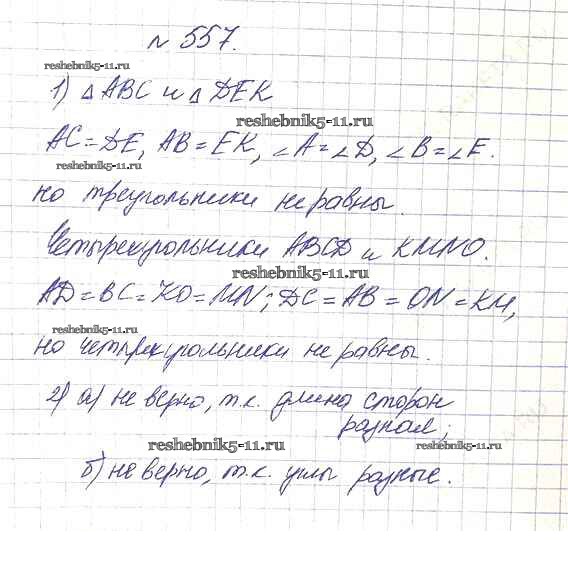 № 557.
reshebnik5-11.ru
1) △ ABC и △ DEK
reshebnik5-11.ru
AC = DE, AB = EK, ∠A = ∠D, ∠B = ∠E.
reshebnik5-11.ru
но треугольники не равны.
Четырехугольники ABCD и KMNO.
reshebnik5-11.ru
AD = BC = KO = MN; DC = AB = ON = KM,
reshebnik5-11.ru
но четырехугольники не равны.
2) а) не верно, т.к. длина сторон
разная;
reshebnik5-11.ru reshebnik5-11.ru
б) не верно, т.к. углы разные.